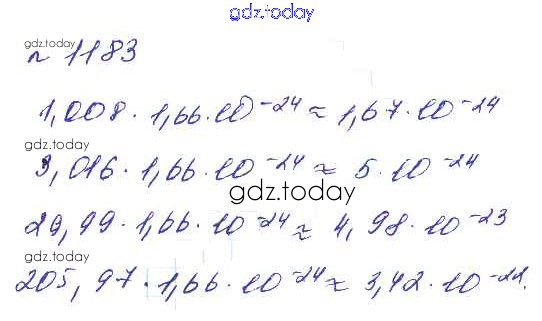 gdz.today
gdz.today
n 1183
1,008 · 1,66 · 10⁻²⁴ ≈ 1,67 · 10⁻²⁴
gdz.today
3,016 · 1,66 · 10⁻²⁴ ≈ 5 · 10⁻²⁴
gdz.today
29,99 · 1,66 · 10⁻²⁴ ≈ 4,98 · 10⁻²³
gdz.today
205,97 · 1,66 · 10⁻²⁴ ≈ 3,42 · 10⁻²².